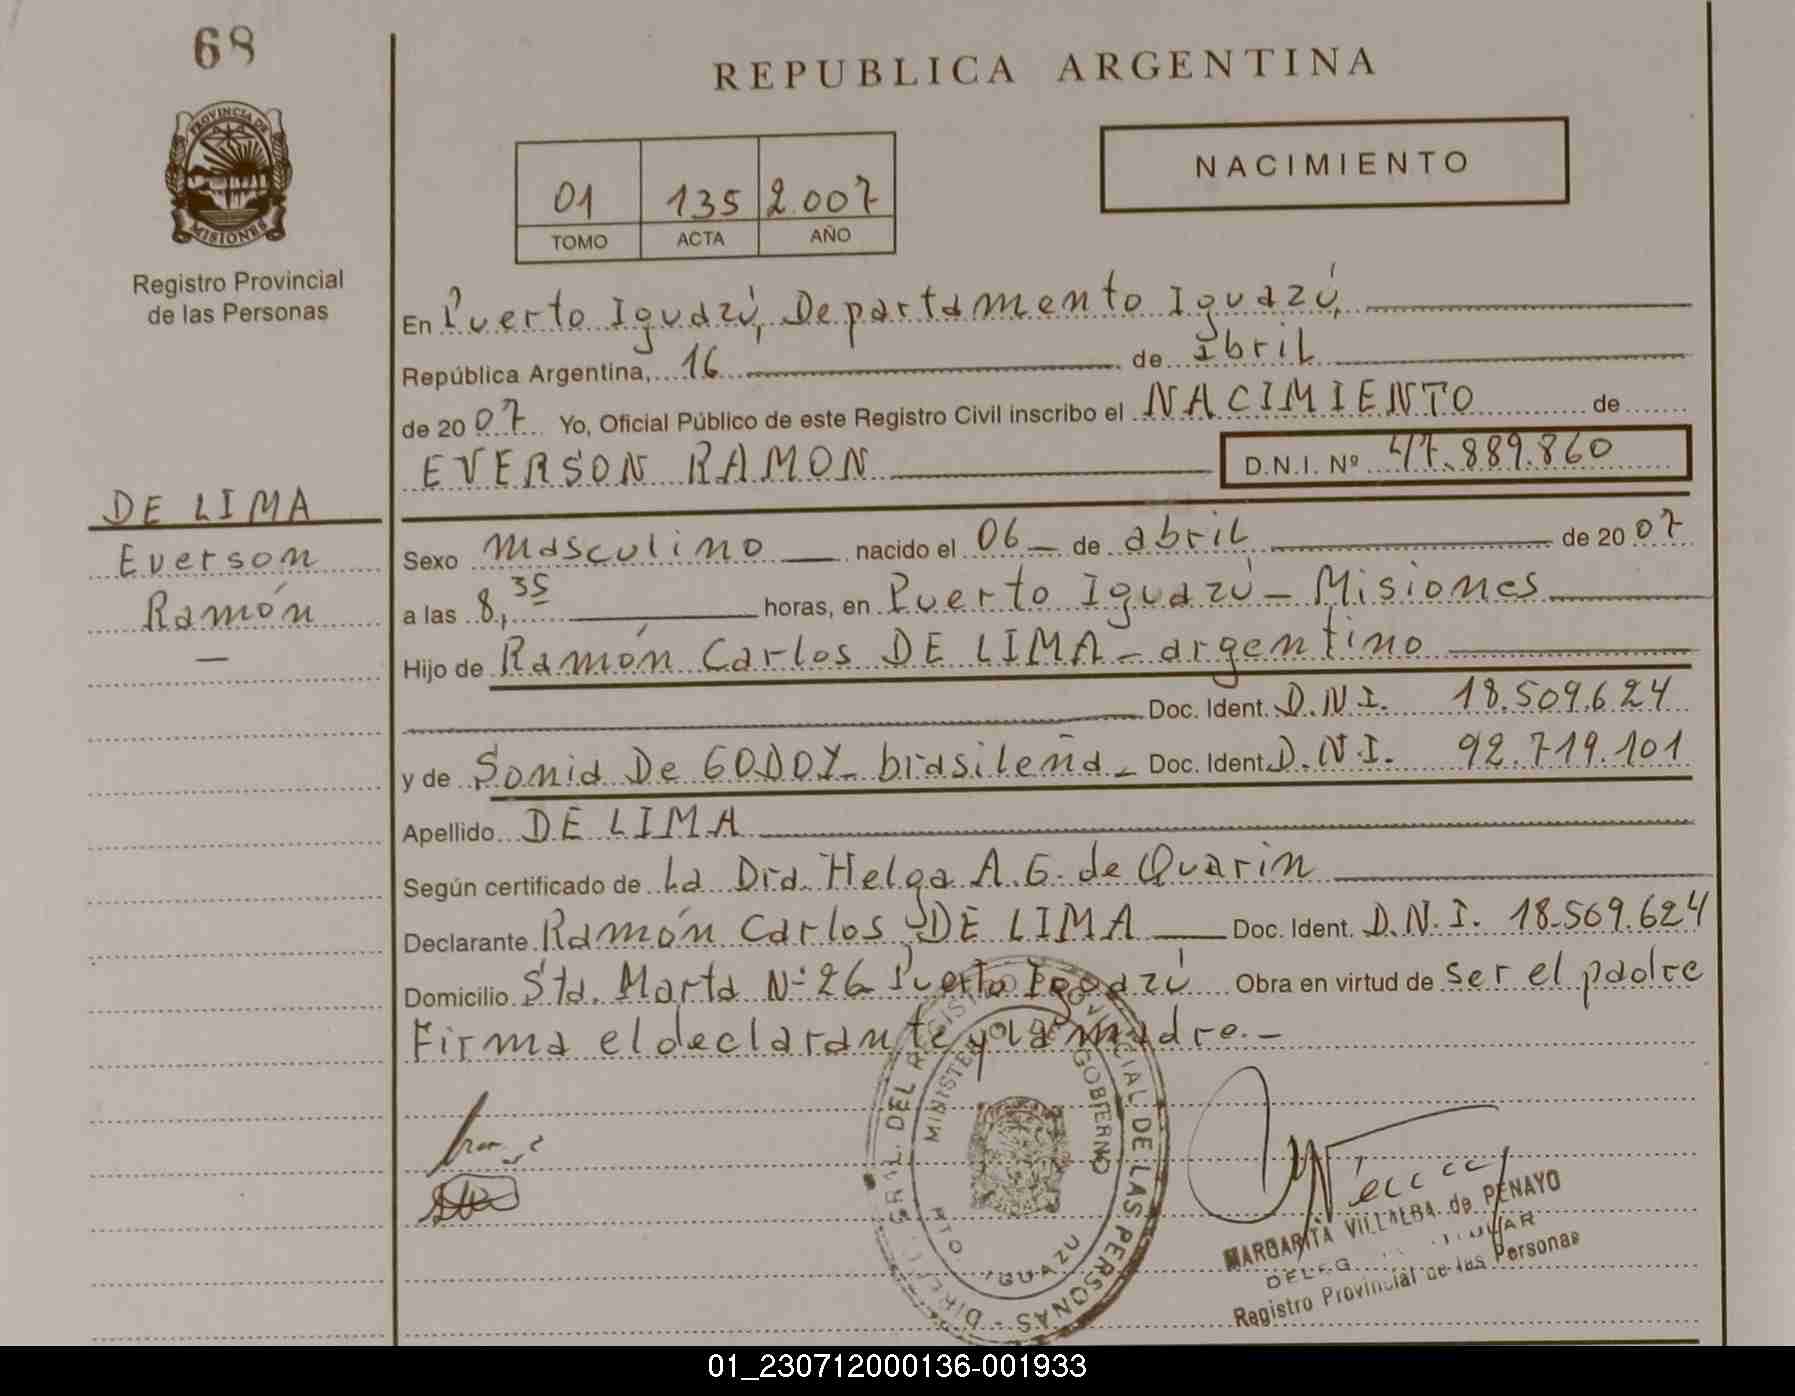 68
REPUBLICA ARGENTINA
PROVINCIA DE
MISIONES
Registro Provincial
de las Personas
01 135 2.007
TOMO ACTA AÑO
NACIMIENTO
En Puerto Iguazú, Departamento Iguazú,
República Argentina, 16 de Abril
de 2007 Yo, Oficial Público de este Registro Civil inscribo el NACIMIENTO de
EVERSON RAMON D.N.I. Nº 47.889.860
DE LIMA
Everson
Ramón
Sexo masculino nacido el 06 de abril de 2007
a las 8,35 horas, en Puerto Iguazú - Misiones
Hijo de Ramón Carlos DE LIMA - argentino
Doc. Ident. D.N.I. 18.509.624
y de Sonia De GODOY - brasileña - Doc. Ident. D.N.I. 92.719.101
Apellido DE LIMA
Según certificado de La Dra. Helga A. G. de Quarin
Declarante Ramón Carlos DE LIMA Doc. Ident. D.N.I. 18.509.624
Domicilio Sta. Marta Nº 26 Puerto Iguazú Obra en virtud de ser el padre
Firma el declarante y la madre.-
DEL REGISTRO PROVINCIAL DE LAS PERSONAS
MINISTERIO DE GOBIERNO
IGUAZU
MARGARITA VILLALBA de PENAYO
Registro Provincial de las Personas
01_230712000136-001933